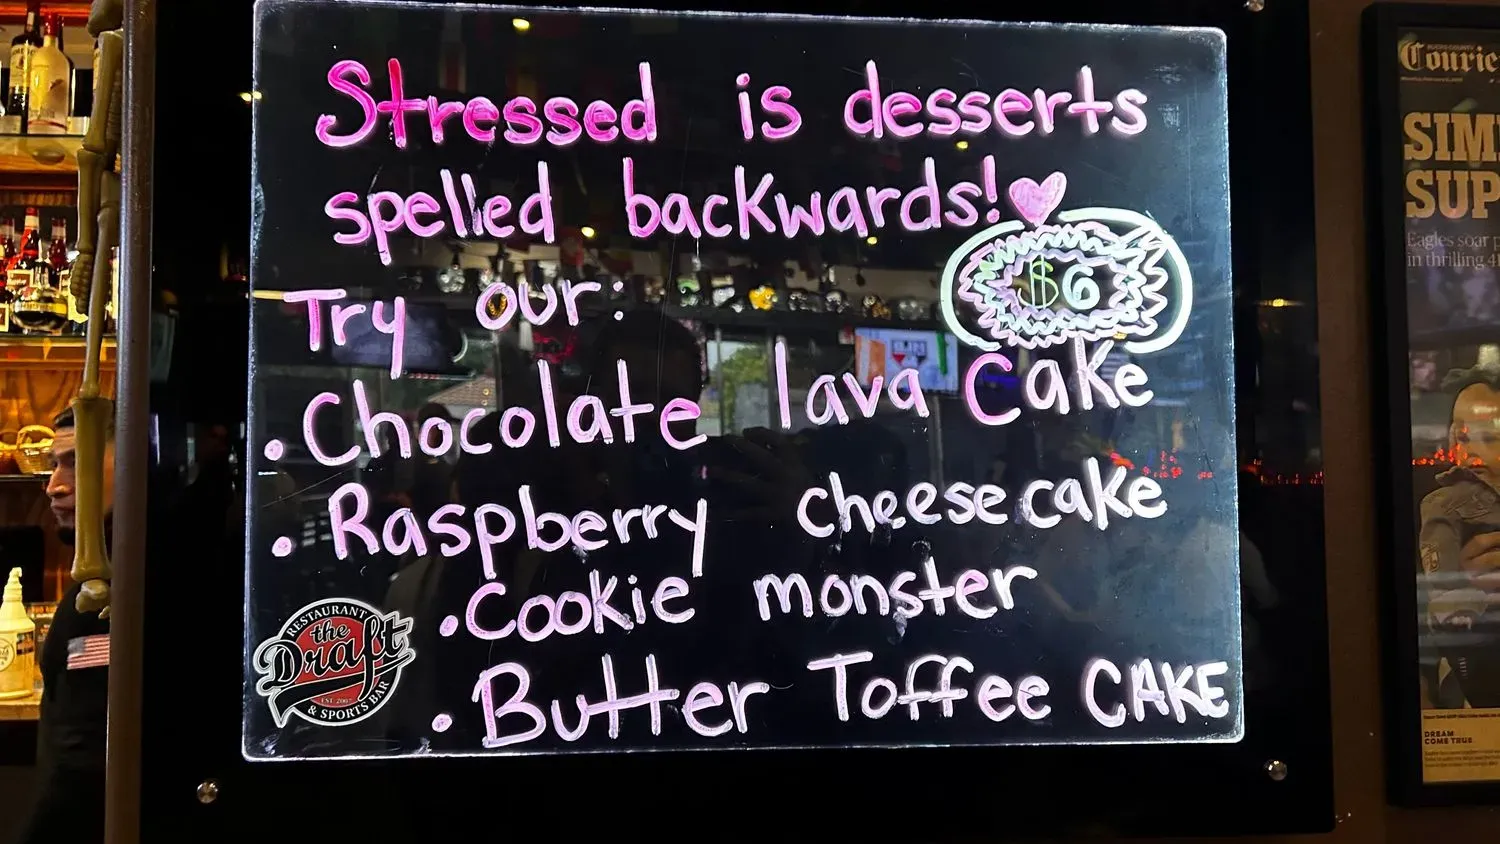 Stressed is desserts
spelled backwards!
Try our:
$6
• Chocolate lava Cake
• Raspberry cheesecake
• Cookie monster
• Butter Toffee CAKE
RESTAURANT
the
Draft
EST. 200
& SPORTS BAR
BUCKS COUNTY
Courie
SIM
SUP
Eagles soar p
in thrilling 4
DREAM
COME TRUE